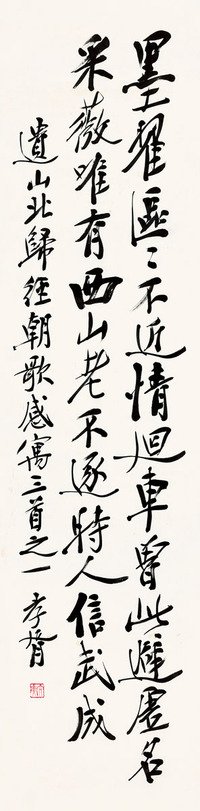 墨翟區〻不近情迴車曾此避虛名
采薇唯有西山老不逐時人信武成
遺山北歸經朝歌感寓三首之一 孝胥